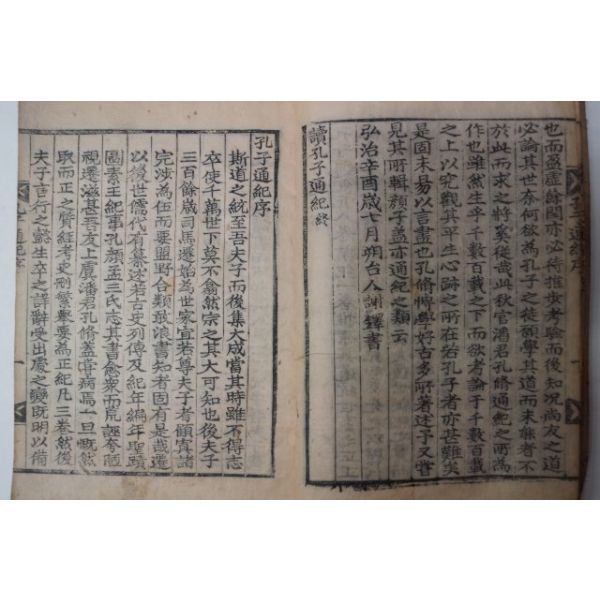 也而盈虛餘閏亦必待推步考驗而後知况尙友之道
必論其世奈何欲爲孔子之徒顧學其道而未能者不
於此而求之將奚從哉此秋官潘君孔脩通紀之所爲
作也雖然生乎千數百載之下而欲考論于千數百載
之上以究觀其平生心跡之所在若孔子者亦甚難矣
是固未易以言盡也孔脩博學好古多所著述予又嘗
見其所輯顏子蓋亦通紀之類云
弘治辛酉歲七月朔台人謝鐸書
讀孔子通紀終
孔子通紀序
孔子通紀序
斯道之統至吾夫子而後集大成當其時雖不得志
卒使千萬世下莫不翕然宗之其大可知也後夫子
三百餘歲司馬遷始爲世家宜若尊夫子者顧寘諸
完涉爲伍而要盟野合類孟浪書知者固有是哉遷
以後世儒代有纂述若古史列傳及紀年編年聖蹟
圖素王紀事孔顏孟三氏志其書愈衆而荒誣夸陋
視遷滋甚吾友上虞潘君孔脩蓋嘗病焉一旦慨然
取而正之質經考史刪繁舉要爲正紀凡三卷然後
夫子言行之懿生卒之詳辭受出處之變旣明以備